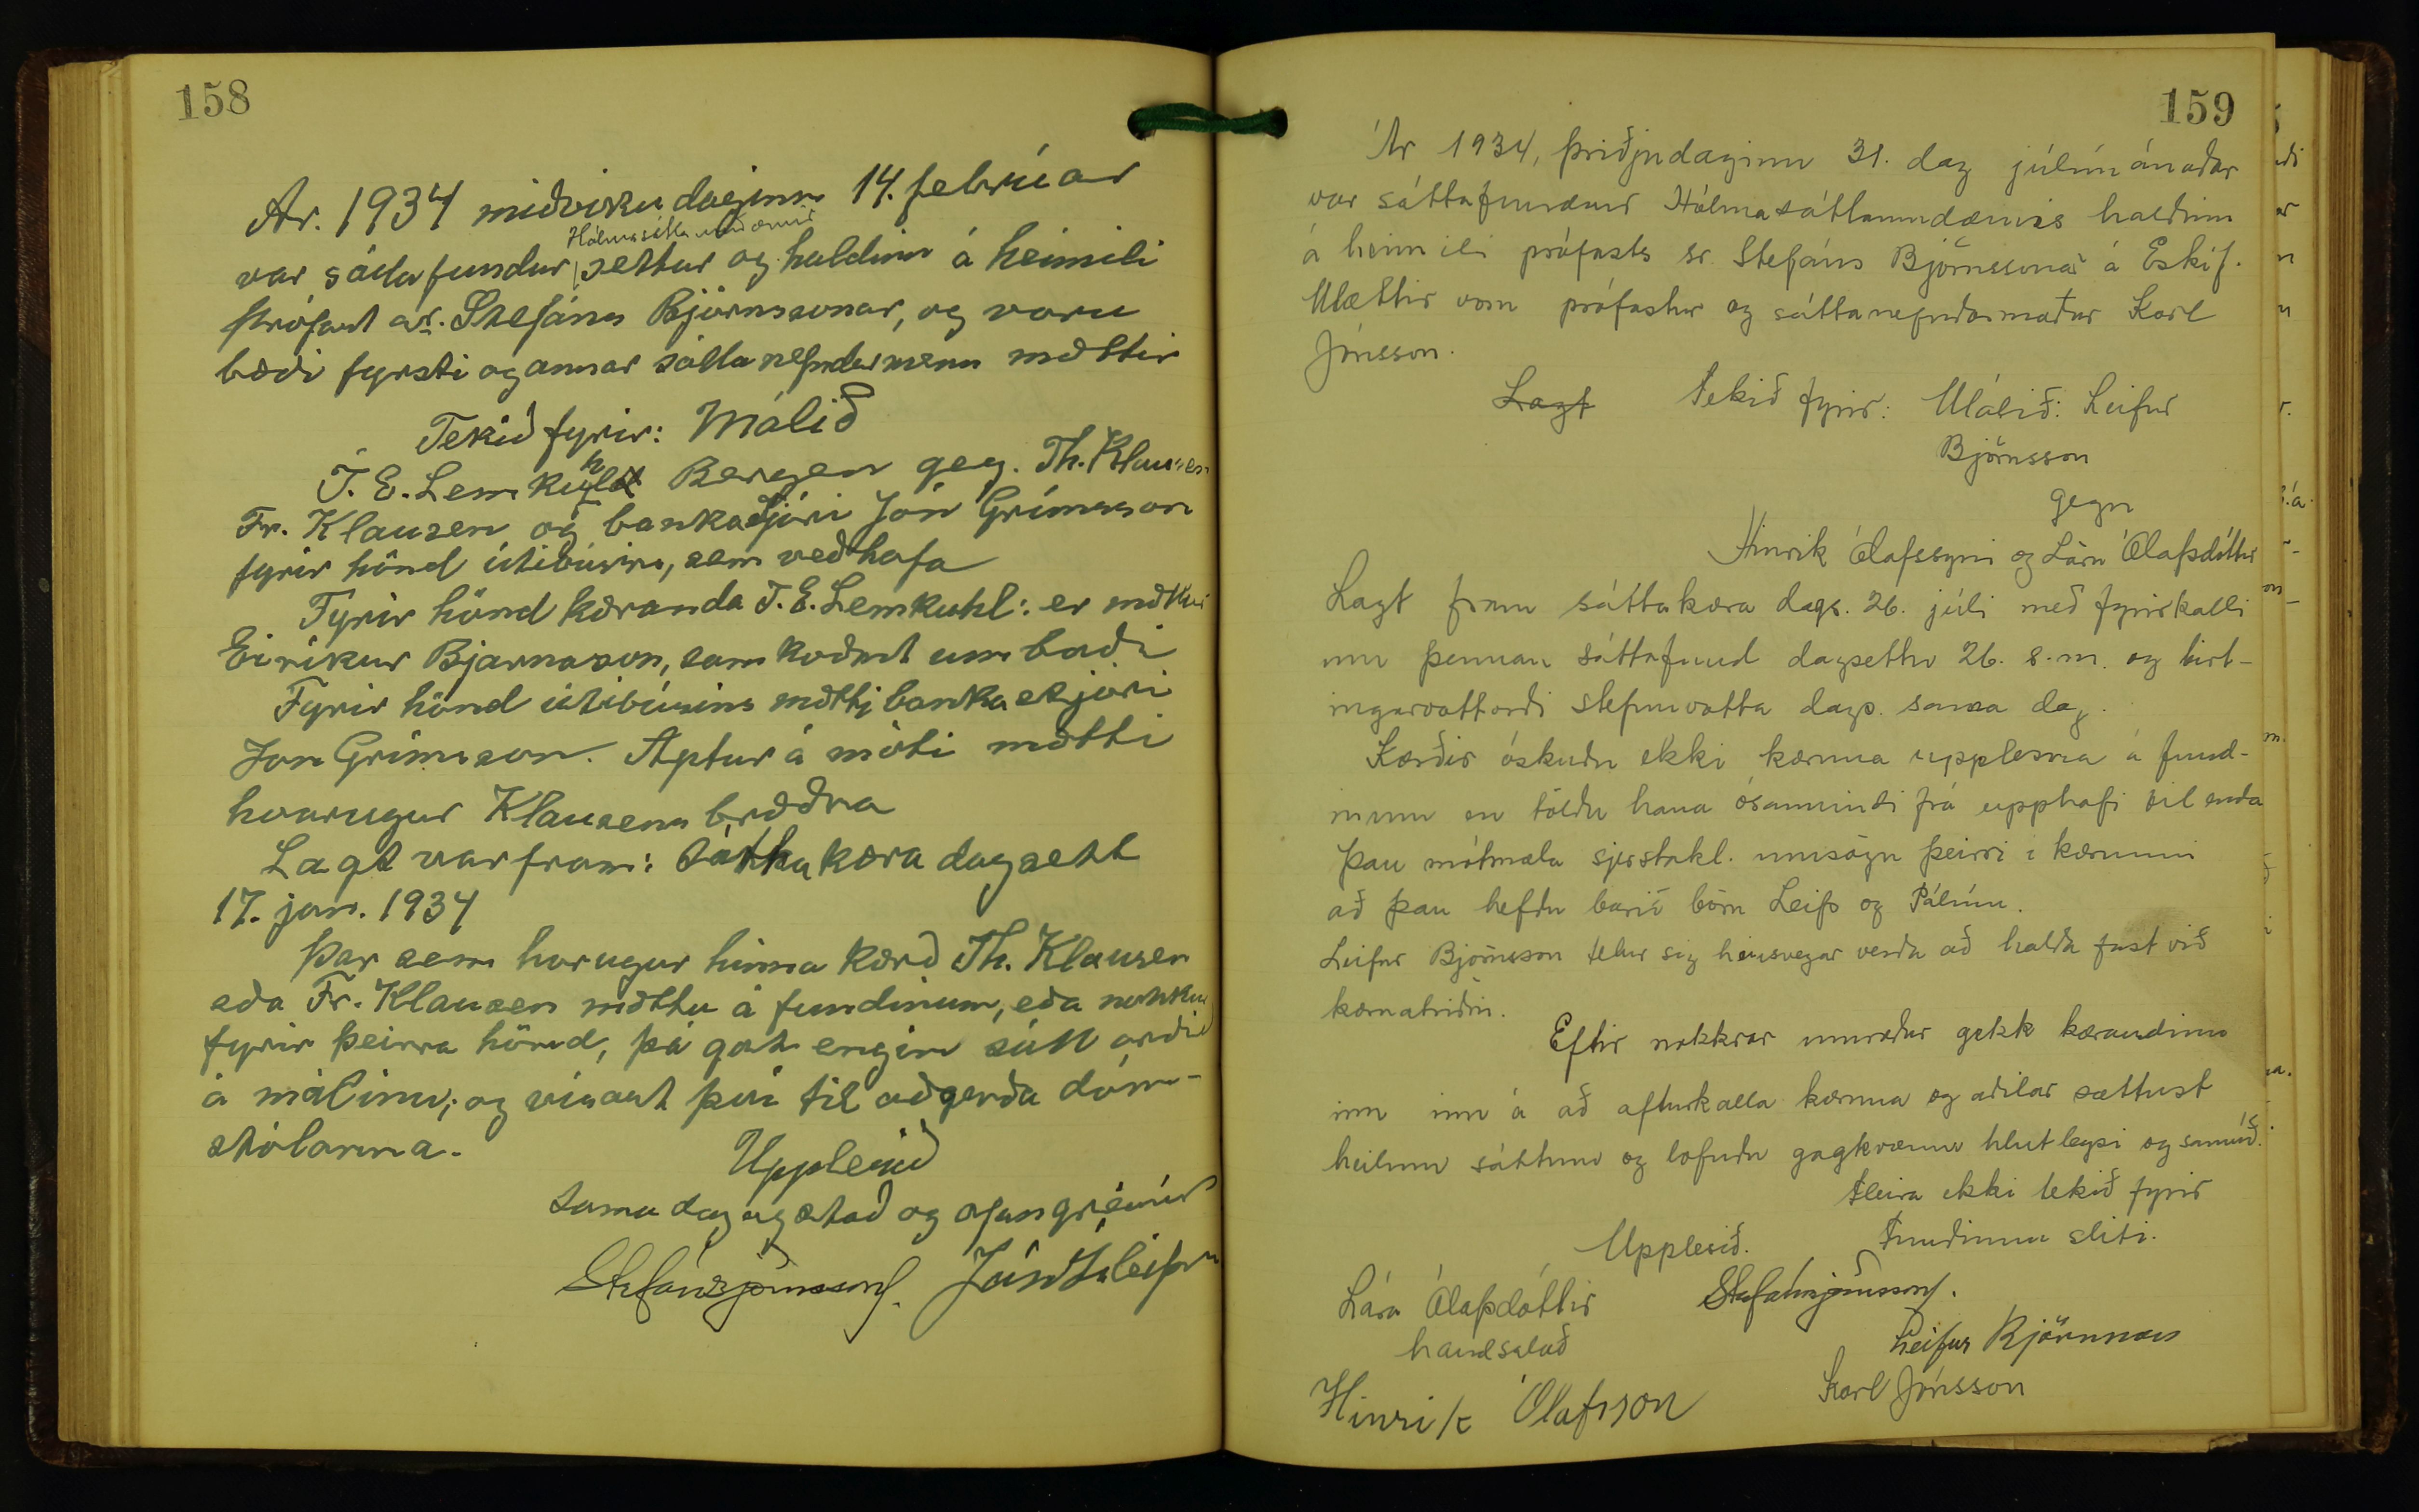 158
Ar. 1934 miðvikudaginn 14. febrúar
Hólmasáttaumdæmis
var sáttafundur settur og haldinn á heimili
prófast sr. Stefáns Björnssonar, og voru
bæði fyrsti og annar sáttanefndarmenn mættir
Tekið fyrir: Málið
J. E. Lemkuhl Bergen geg. Th. Klausen
Fr. Klausen og bankastjóri Jón Grímsson
fyrir hönd útibúsins, sem veðhafa
Fyrir hönd kæranda J. E. Lemkuhl: er mættur
Eiríkur Bjarnason, sem koðast umboði
Fyrir hönd útibúsins mætti bankaskjóri
Jon Grímsson. Aptur á móti mætti
hvorugur Klausens bræðra
Lagt var fram: Sáttakæra dagsett
17. jan. 1934
Þar sem horugur hinna kærð Th. Klausen
eða Fr. Klausen mættu á fundinum, eða nokkur
fyrir þeirra hönd, þá gat engin sátt orðið
á málinu; og vísast því til aðgerða dóm-
stólanna.
Upplesið
Sama dag og stað og ofangreinir
Stefán Björnsson. Jón Ísleifsson
159
Ár 1934, þriðjudaginn 31. dag júlímánaðar
var sáttafundur Hólmasáttaumdæmis haldinn
á heimili prófasts sr. Stefáns Björnssonar á Eskif.
Mættir vom prófastur og sáttanefndarmaður Karl
Jónsson.
Lagt Tekið fyrir: Málið: Leifur
Björnsson
gegn
Hinrik Ólafssyni og Láru Ólafsdóttur
Lagt fram sáttakæra dags. 26. júlí með fyrirkalli
um þennan sáttafund dagsettu 26. s.m. og birt-
ingarvottorði stefnuvotta dags. sama dag.
Kærðir óskuðu ekki kæruna upplesna á fund-
inum en töldu hana ósannindi frá upphafi til enda
Þau mótmæla sjerstakl. umsögn þeirri í kærunni
að þau hefðu barið börn Leifs og Pálínu.
Leifur Björnsson telur sig hinsvegar verða að halda fast við
kæruatriðin.
Eftir nokkrar umræður gekk kærandinn
inn á að afturkalla kæruna og aðilar sættust
heilum sáttum og lofuðu gagkvæmu hlutleysi og samúð.
Fleira ekki tekið fyrir
Upplesið. Fundinum slitið.
Lára Ólafsdóttir Stefán Björnsson.
handsalað Leifur Björnsson
Karl Jónsson
Hinrik Ólafsson